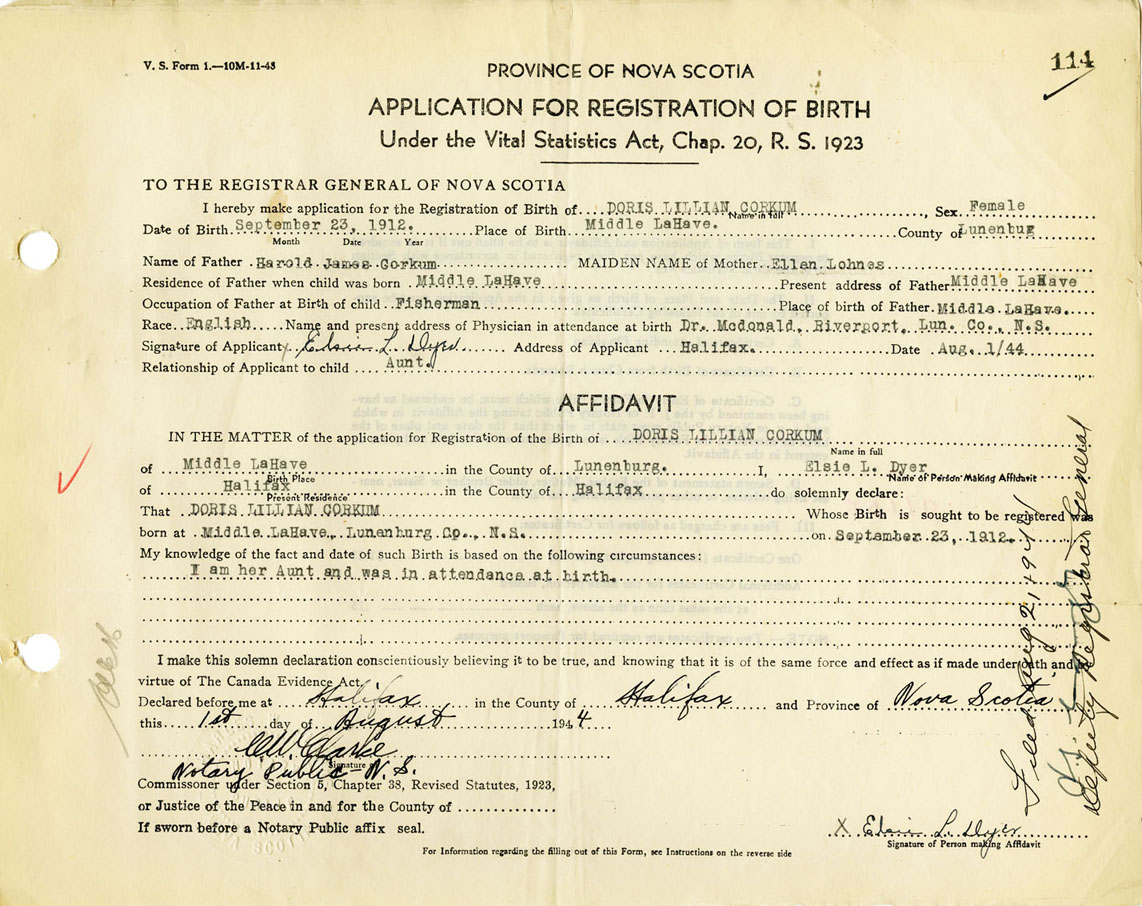 V. S. Form 1.—10M-11-43
114
PROVINCE OF NOVA SCOTIA
APPLICATION FOR REGISTRATION OF BIRTH
Under the Vital Statistics Act, Chap. 20, R. S. 1923
TO THE REGISTRAR GENERAL OF NOVA SCOTIA
I hereby make application for the Registration of Birth of DORIS LILLIAN CORKUM, Sex Female
Name in full
Date of Birth September 23, 1912. Place of Birth Middle LaHave. County of Lunenburg
Month Date Year
Name of Father Harold James Corkum MAIDEN NAME of Mother Ellen Lohnes
Residence of Father when child was born Middle LaHave Present address of Father Middle LaHave
Occupation of Father at Birth of child Fisherman Place of birth of Father Middle LaHave.
Race English Name and present address of Physician in attendance at birth Dr. Mcdonald, Riverport, Lun. Co., N.S.
Signature of Applicant Elsie L. Dyer Address of Applicant Halifax. Date Aug. 1/44
Relationship of Applicant to child Aunt.
AFFIDAVIT
IN THE MATTER of the application for Registration of the Birth of DORIS LILLIAN CORKUM
Name in full
of Middle LaHave in the County of Lunenburg. I, Elsie L. Dyer
Birth Place Name of Person Making Affidavit
of Halifax in the County of Halifax do solemnly declare:
Present Residence
That DORIS LILLIAN CORKUM Whose Birth is sought to be registered was
born at Middle LaHave, Lunenburg Co., N.S. on September 23, 1912.
My knowledge of the fact and date of such Birth is based on the following circumstances:
I am her Aunt and was in attendance at birth.
I make this solemn declaration conscientiously believing it to be true, and knowing that it is of the same force and effect as if made under oath and in
virtue of The Canada Evidence Act.
Declared before me at Halifax in the County of Halifax and Province of Nova Scotia
this 1st day of August 1944
CW Clarke
Signature
Notary Public - N. S.
Commissoner under Section 5, Chapter 38, Revised Statutes, 1923,
or Justice of the Peace in and for the County of
If sworn before a Notary Public affix seal.
X Elsie L. Dyer
Signature of Person making Affidavit
For Information regarding the filling out of this Form, see Instructions on the reverse side
Filed Aug 2 1944
Deputy Registrar General